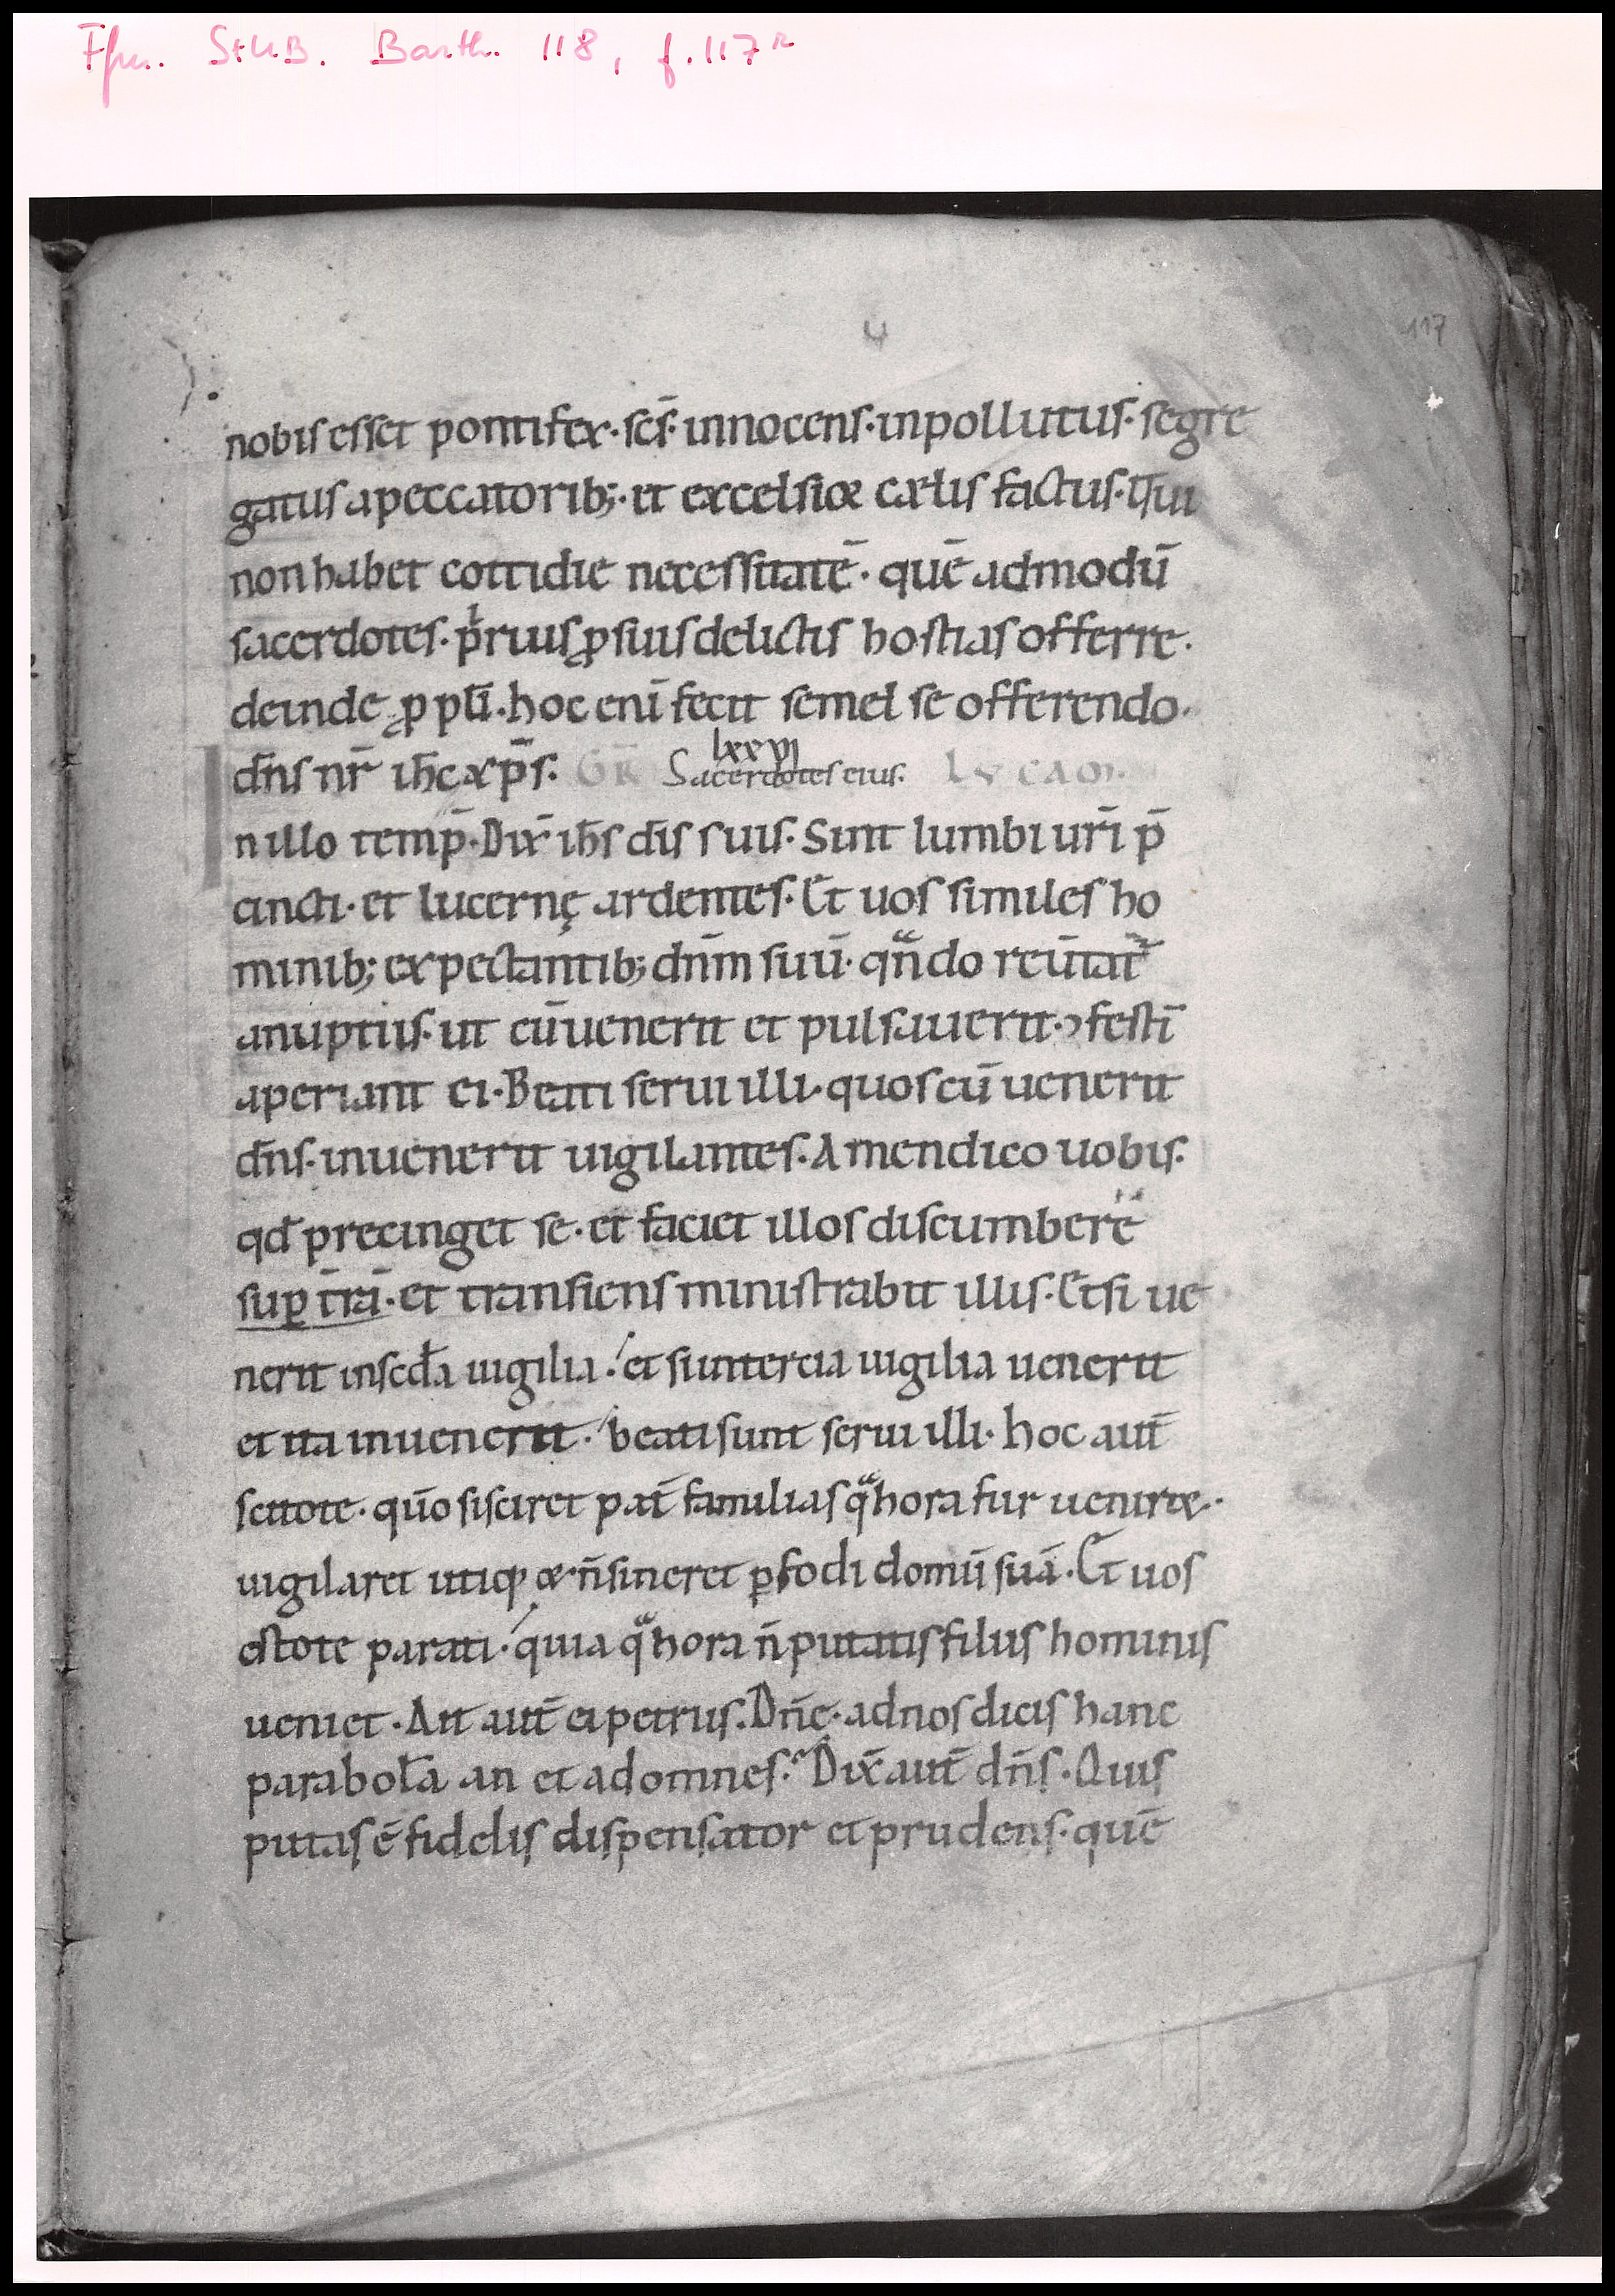 Ffm. StUB. Barth. 118, f. 117r
117
nobis esset pontifex · sc̄s · innocens · inpollutus · segre
gatus a peccatorib; · et excelsior cælis factus · Qui
non habet cottidie necessitatē · quē admodū
sacerdotes · prius ꝓ suis delictis hostias offerre ·
deinde ꝓ pl̄i · hoc enī fecit semel se offerendo ·
dn̄s nr̄ ih̄c xp̄s · GR̄ Sacerdotes eius · LUCAM ·
lxxvi
In illo temp̄ · Dix̄ ih̄s dīs suis · Sint lumbi ur̄i p̄
cincti · et lucernę ardentes · Et uos similes ho
minib; expectantib; dn̄m suū · qn̄do reūtat᷑
a nuptiis · ut cū uenerit et pulsauerit · ɔfestī
aperiant ei · Beati serui illi · quos cū uenerit
dn̄s · inuenerit uigilantes · Amen dico uobis ·
qđ precinget se · et faciet illos discumbere
suꝑ tr̄ā · et transiens ministrabit illis · Et si ue
nerit in sc̄da uigilia · et si in tercia uigilia uenerit
et ita inuenerit · beati sunt serui illi · hoc aut̄
scitote · qūo si sciret pat̄ familias qͣ hora fur ueniret ·
uigilaret utiqꝫ & n̄ sineret ꝑfodi domū suā · Et uos
estote parati · quia qͣ hora n̄ putatis filius hominis
ueniet · Ait aut̄ ei petrus · Dn̄e · ad nos dicis hanc
parabolā an et ad omnes · Dix̄ aut̄ dn̄s · Quis
putas ē fidelis dispensator et prudens · quē